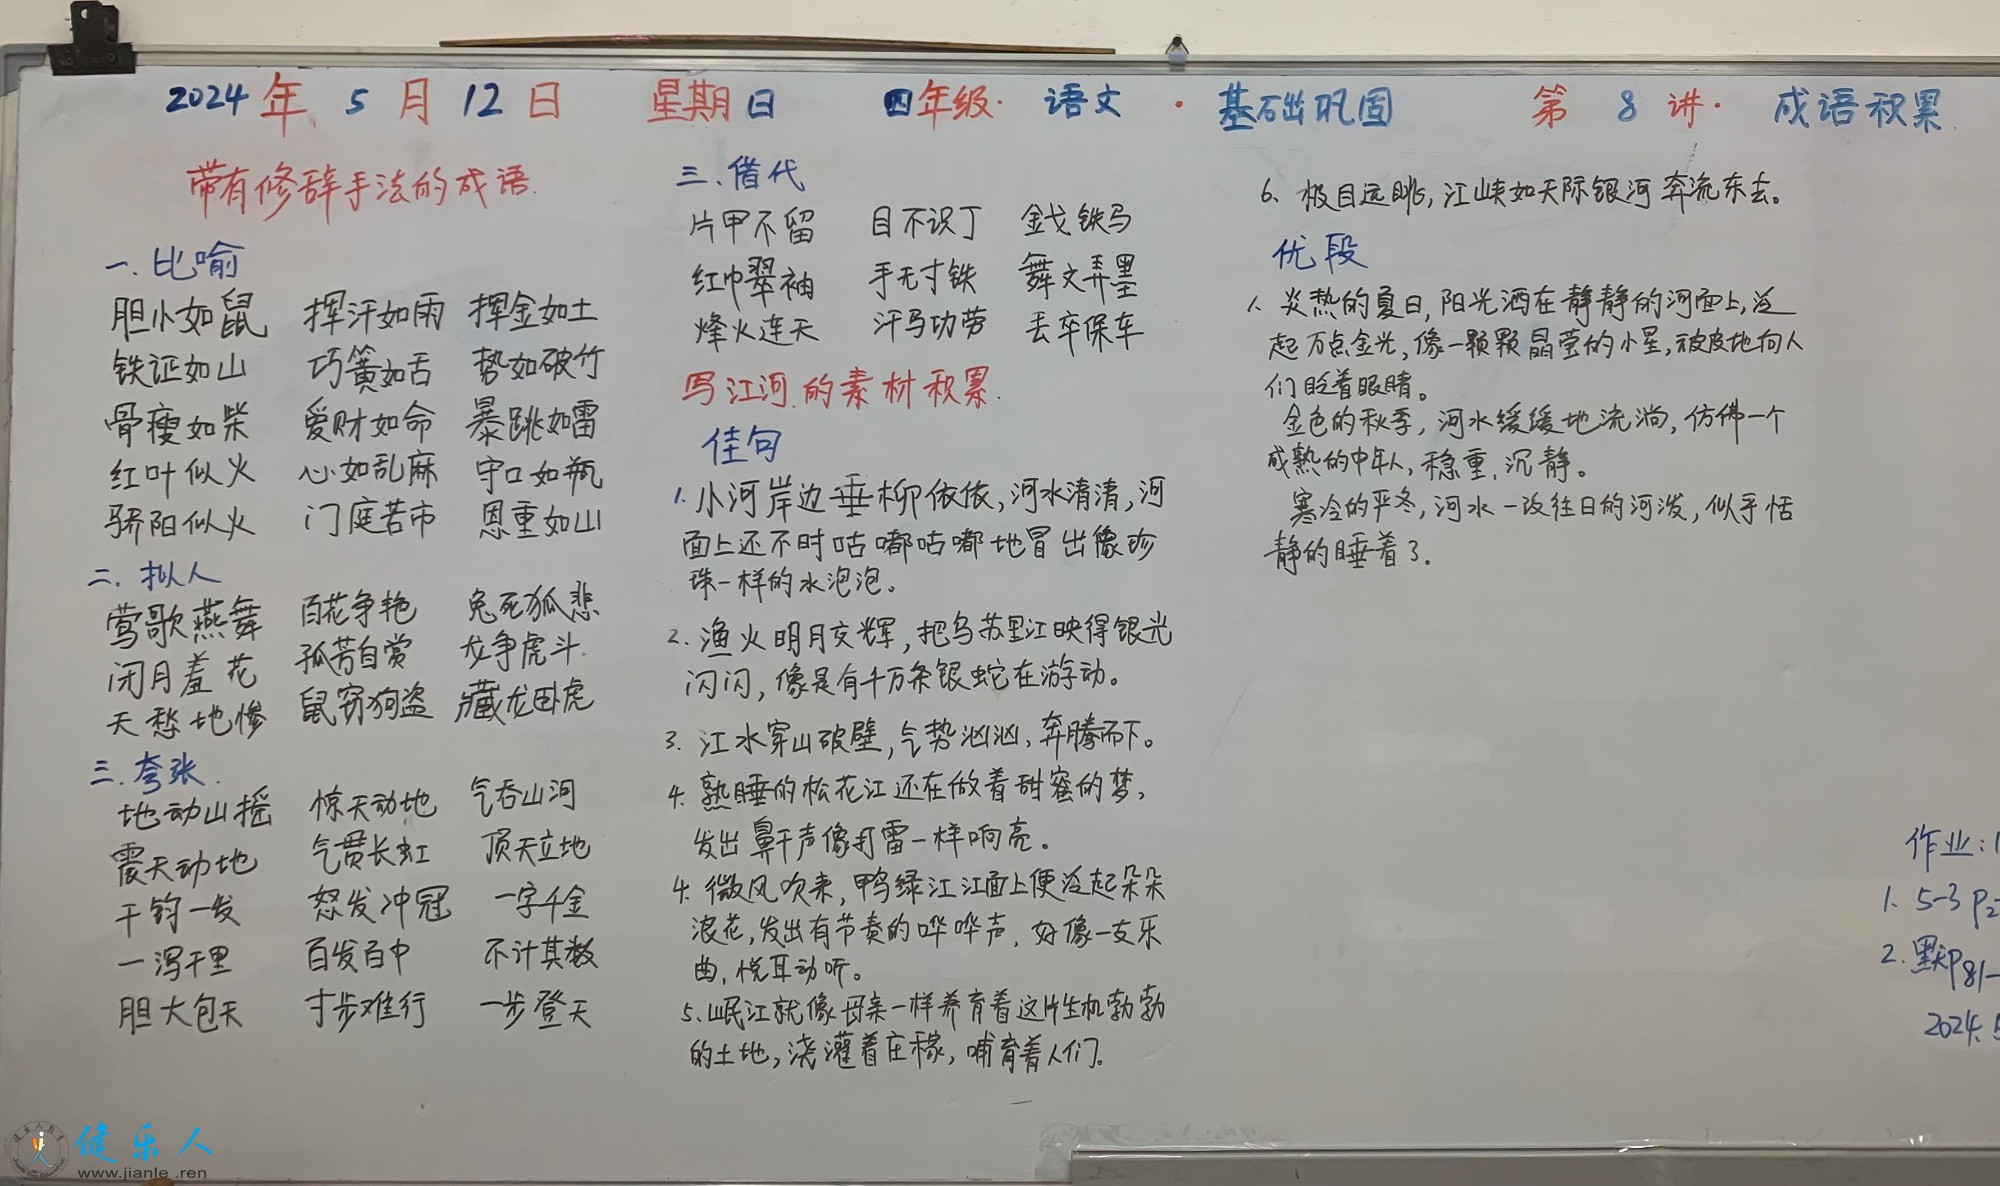 2024年5月12日 星期日 四年级·语文·基础巩固 第8讲·成语积累
带有修辞手法的成语
一.比喻
胆小如鼠 挥汗如雨 挥金如土
铁证如山 巧簧如舌 势如破竹
骨瘦如柴 爱财如命 暴跳如雷
红叶似火 心如乱麻 守口如瓶
骄阳似火 门庭若市 恩重如山
二.拟人
莺歌燕舞 百花争艳 兔死狐悲
闭月羞花 孤芳自赏 龙争虎斗
天愁地惨 鼠窃狗盗 藏龙卧虎
三.夸张
地动山摇 惊天动地 气吞山河
震天动地 气贯长虹 顶天立地
千钧一发 怒发冲冠 一字千金
一泻千里 百发百中 不计其数
胆大包天 寸步难行 一步登天
三.借代
片甲不留 目不识丁 金戈铁马
红巾翠袖 手无寸铁 舞文弄墨
烽火连天 汗马功劳 丢卒保车
写江河的素材积累
佳句
1.小河岸边垂柳依依,河水清清,河
面上还不时咕嘟咕嘟地冒出像珍
珠一样的水泡泡。
2.渔火明月交辉,把乌苏里江映得银光
闪闪,像是有千万条银蛇在游动。
3.江水穿山破壁,气势汹汹,奔腾而下。
4.熟睡的松花江还在做着甜蜜的梦,
发出鼾声像打雷一样响亮。
4.微风吹来,鸭绿江江面上便泛起朵朵
浪花,发出有节奏的哗哗声,好像一支乐
曲,悦耳动听。
5.岷江就像母亲一样养育着这片生机勃勃
的土地,浇灌着庄稼,哺育着人们。
6.极目远眺,江峡如天际银河奔流东去。
优段
1.炎热的夏日,阳光洒在静静的河面上,泛
起万点金光,像一颗颗晶莹的小星,顽皮地向人
们眨着眼睛。
金色的秋季,河水缓缓地流淌,仿佛一个
成熟的中年人,稳重,沉静。
寒冷的严冬,河水一改往日的河泼,似乎恬
静的睡着了.
作业:
1.5-3 P2
2.默P81-
2024.5
健乐人
www.jianle.ren